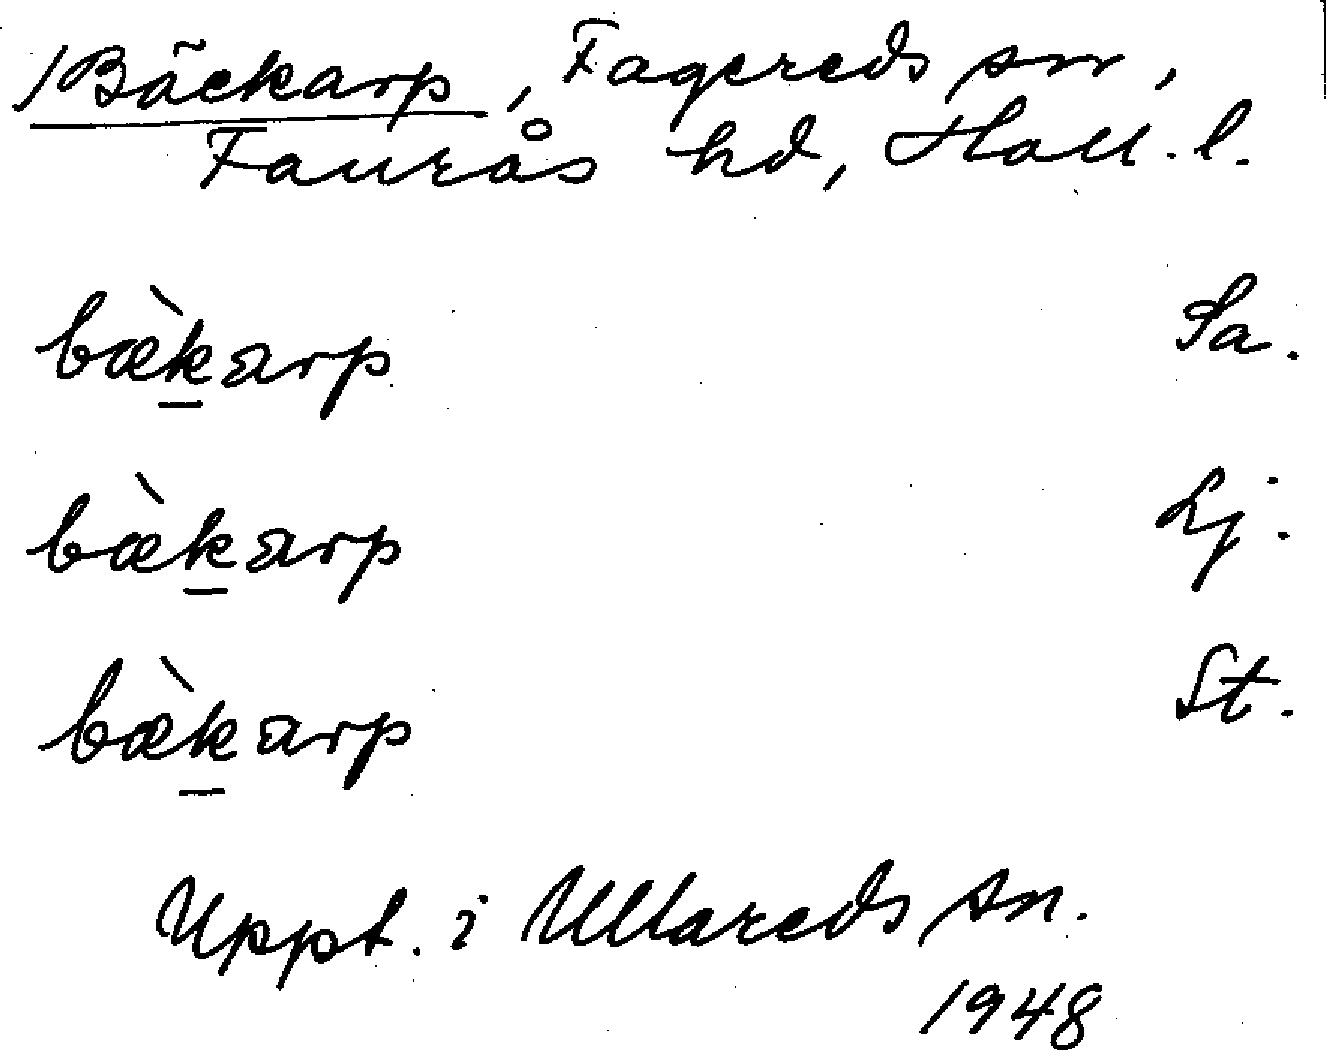 /Bäckarp, Fagereds sn,
Faurås hd, Hall. l.
bæ̀karp Sa.
bæ̀karp Lj.
bæ̀karp St.
Uppt. i Ullareds sn.
1948